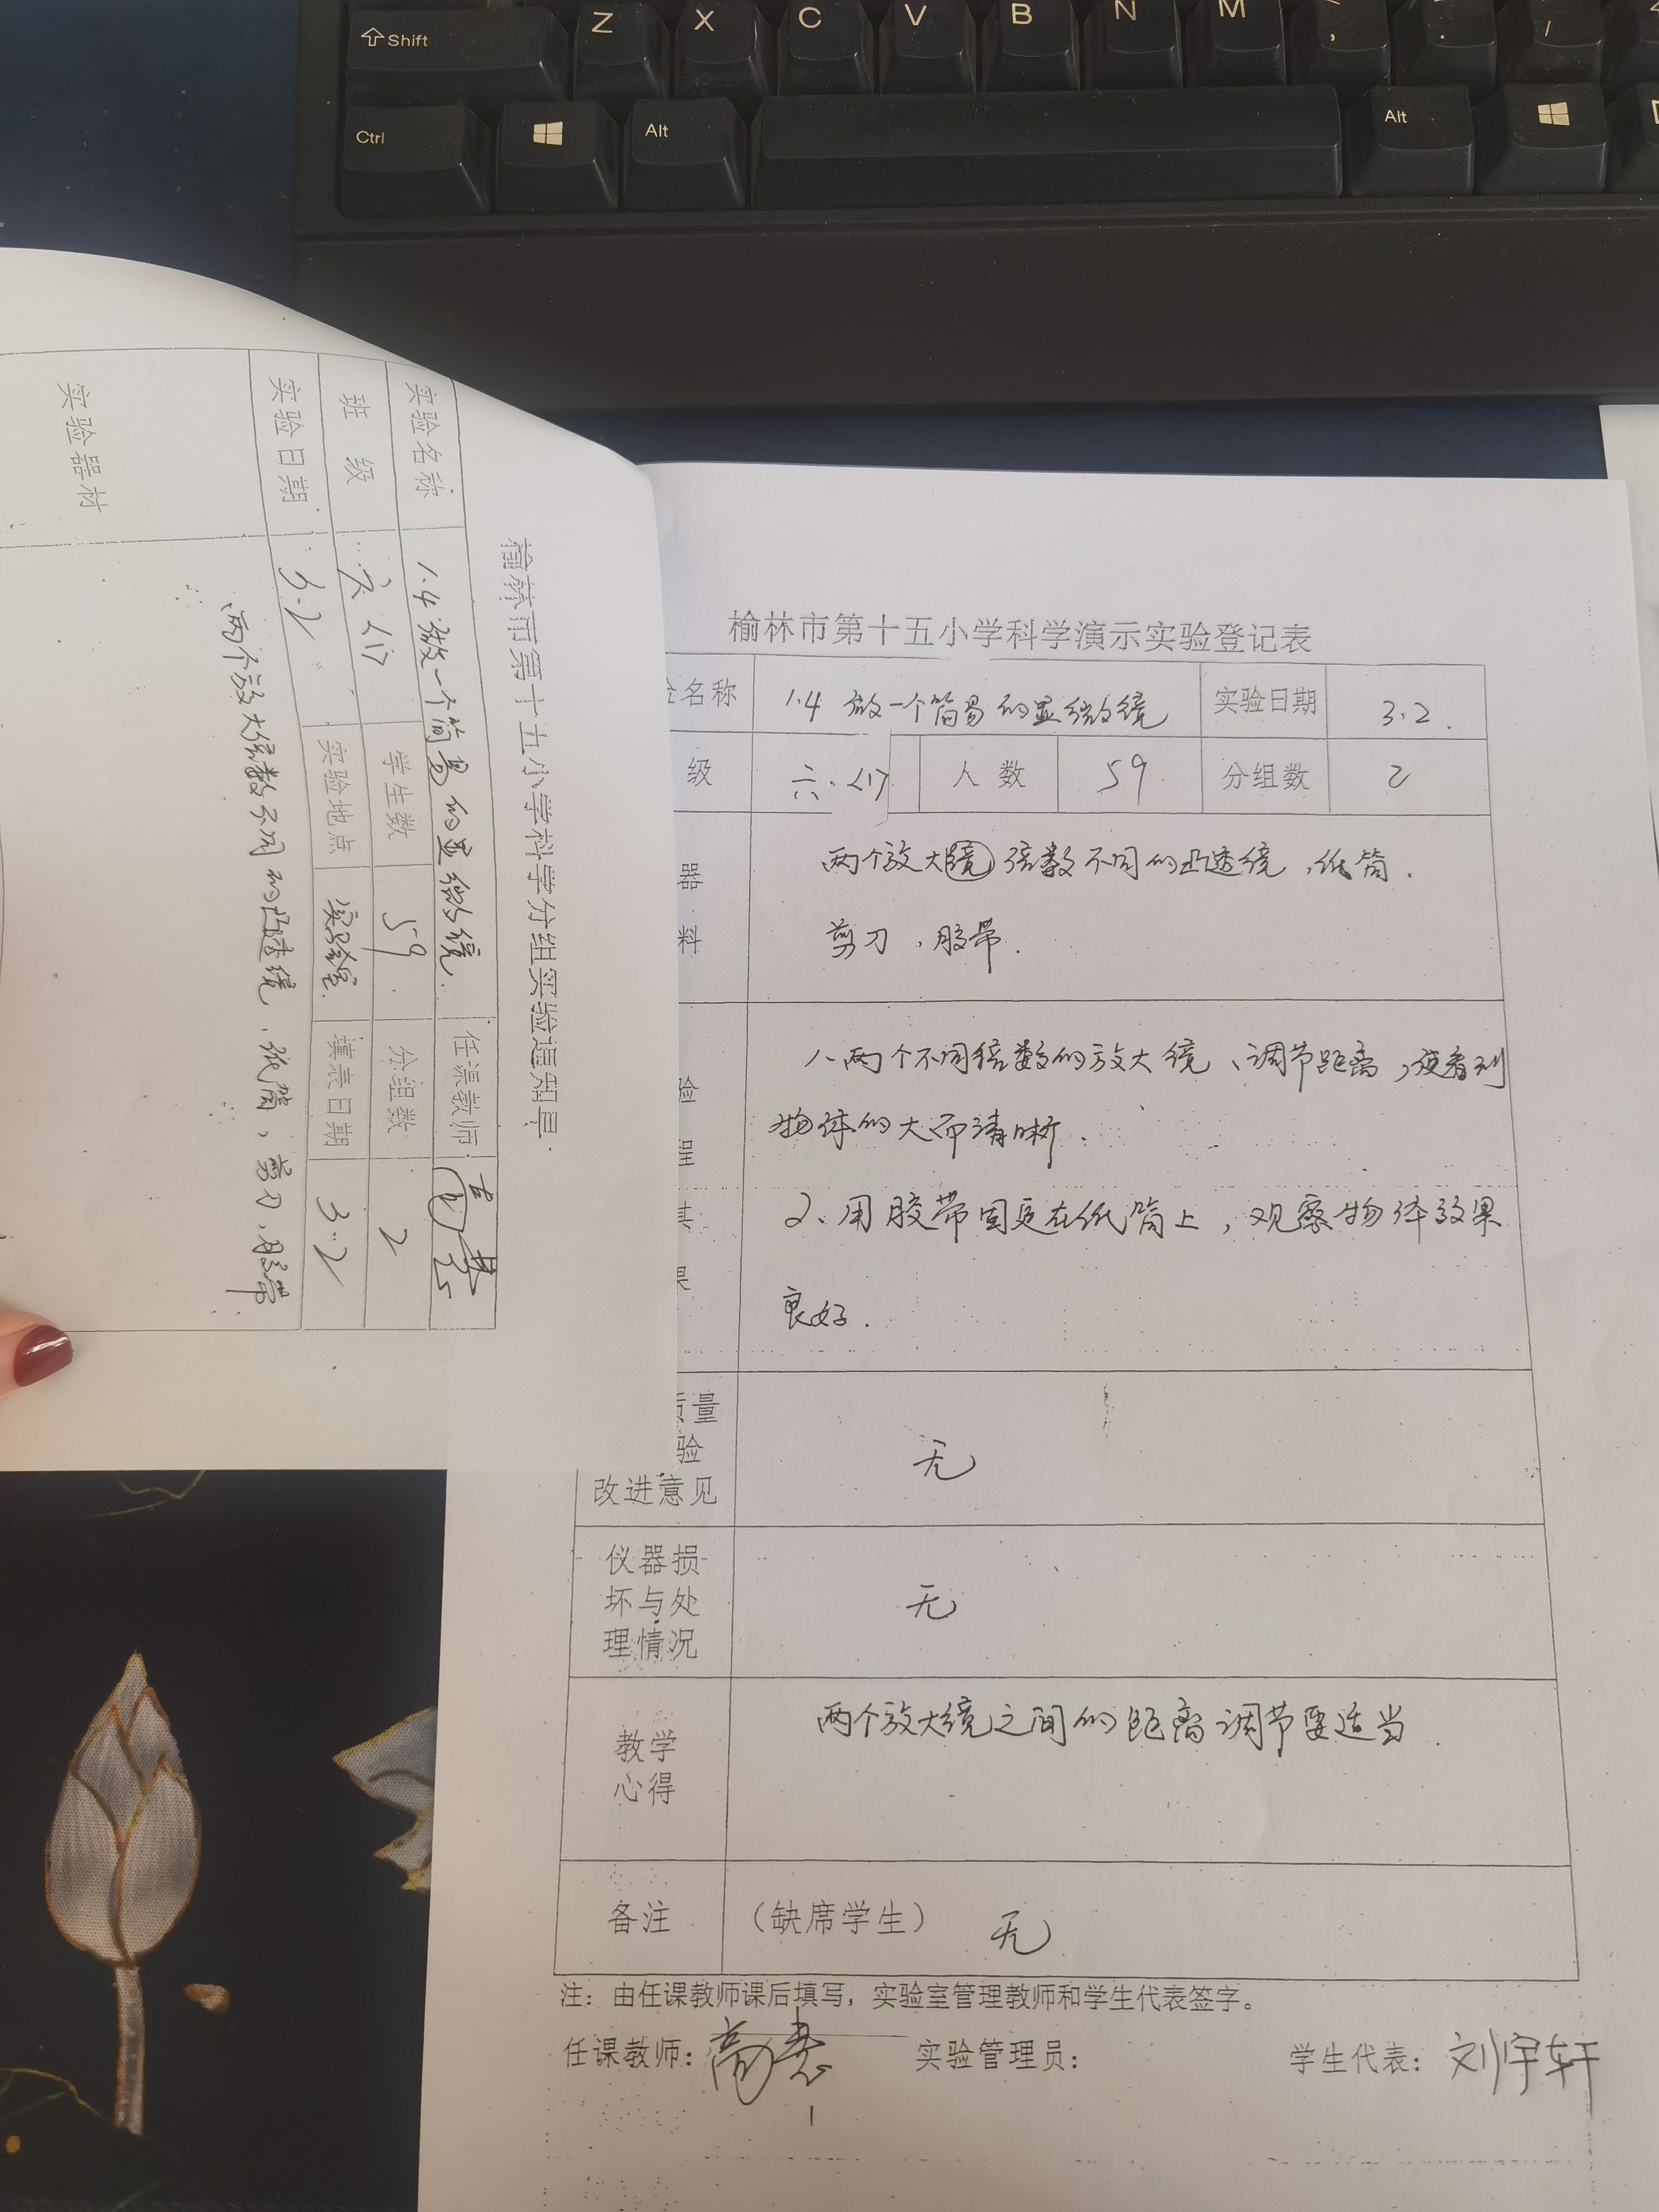 Shift Z X C V B N M , . /
Ctrl Alt Alt
榆林市第十五小学科学分组实验通知单
实验名称 1.4 做一个简易的显微镜. 任课教师
班 级 六<1> 学生数 59. 分组数 2
实验日期 3.2 实验地点 实验室. 填表日期 3.2
实验器材 两个放大倍数不同的凸透镜、纸筒,剪刀、胶带
榆林市第十五小学科学演示实验登记表
名称 1.4 做一个简易的显微镜 实验日期 3.2.
级 六.<1> 人 数 59 分组数 2
器 两个放大镜倍数不同的凸透镜,纸筒.
料 剪刀,胶带.
验 1、两个不同倍数的放大镜、调节距离,使看到
程 物体的大而清晰.
其 2、用胶带固定在纸筒上,观察物体效果
果 良好.
质量
验 无
改进意见
仪器损
坏与处 无
理情况
教学 两个放大镜之间的距离调节要适当.
心得
备注 (缺席学生) 无
注:由任课教师课后填写,实验室管理教师和学生代表签字。
任课教师: 实验管理员: 学生代表:刘宇轩